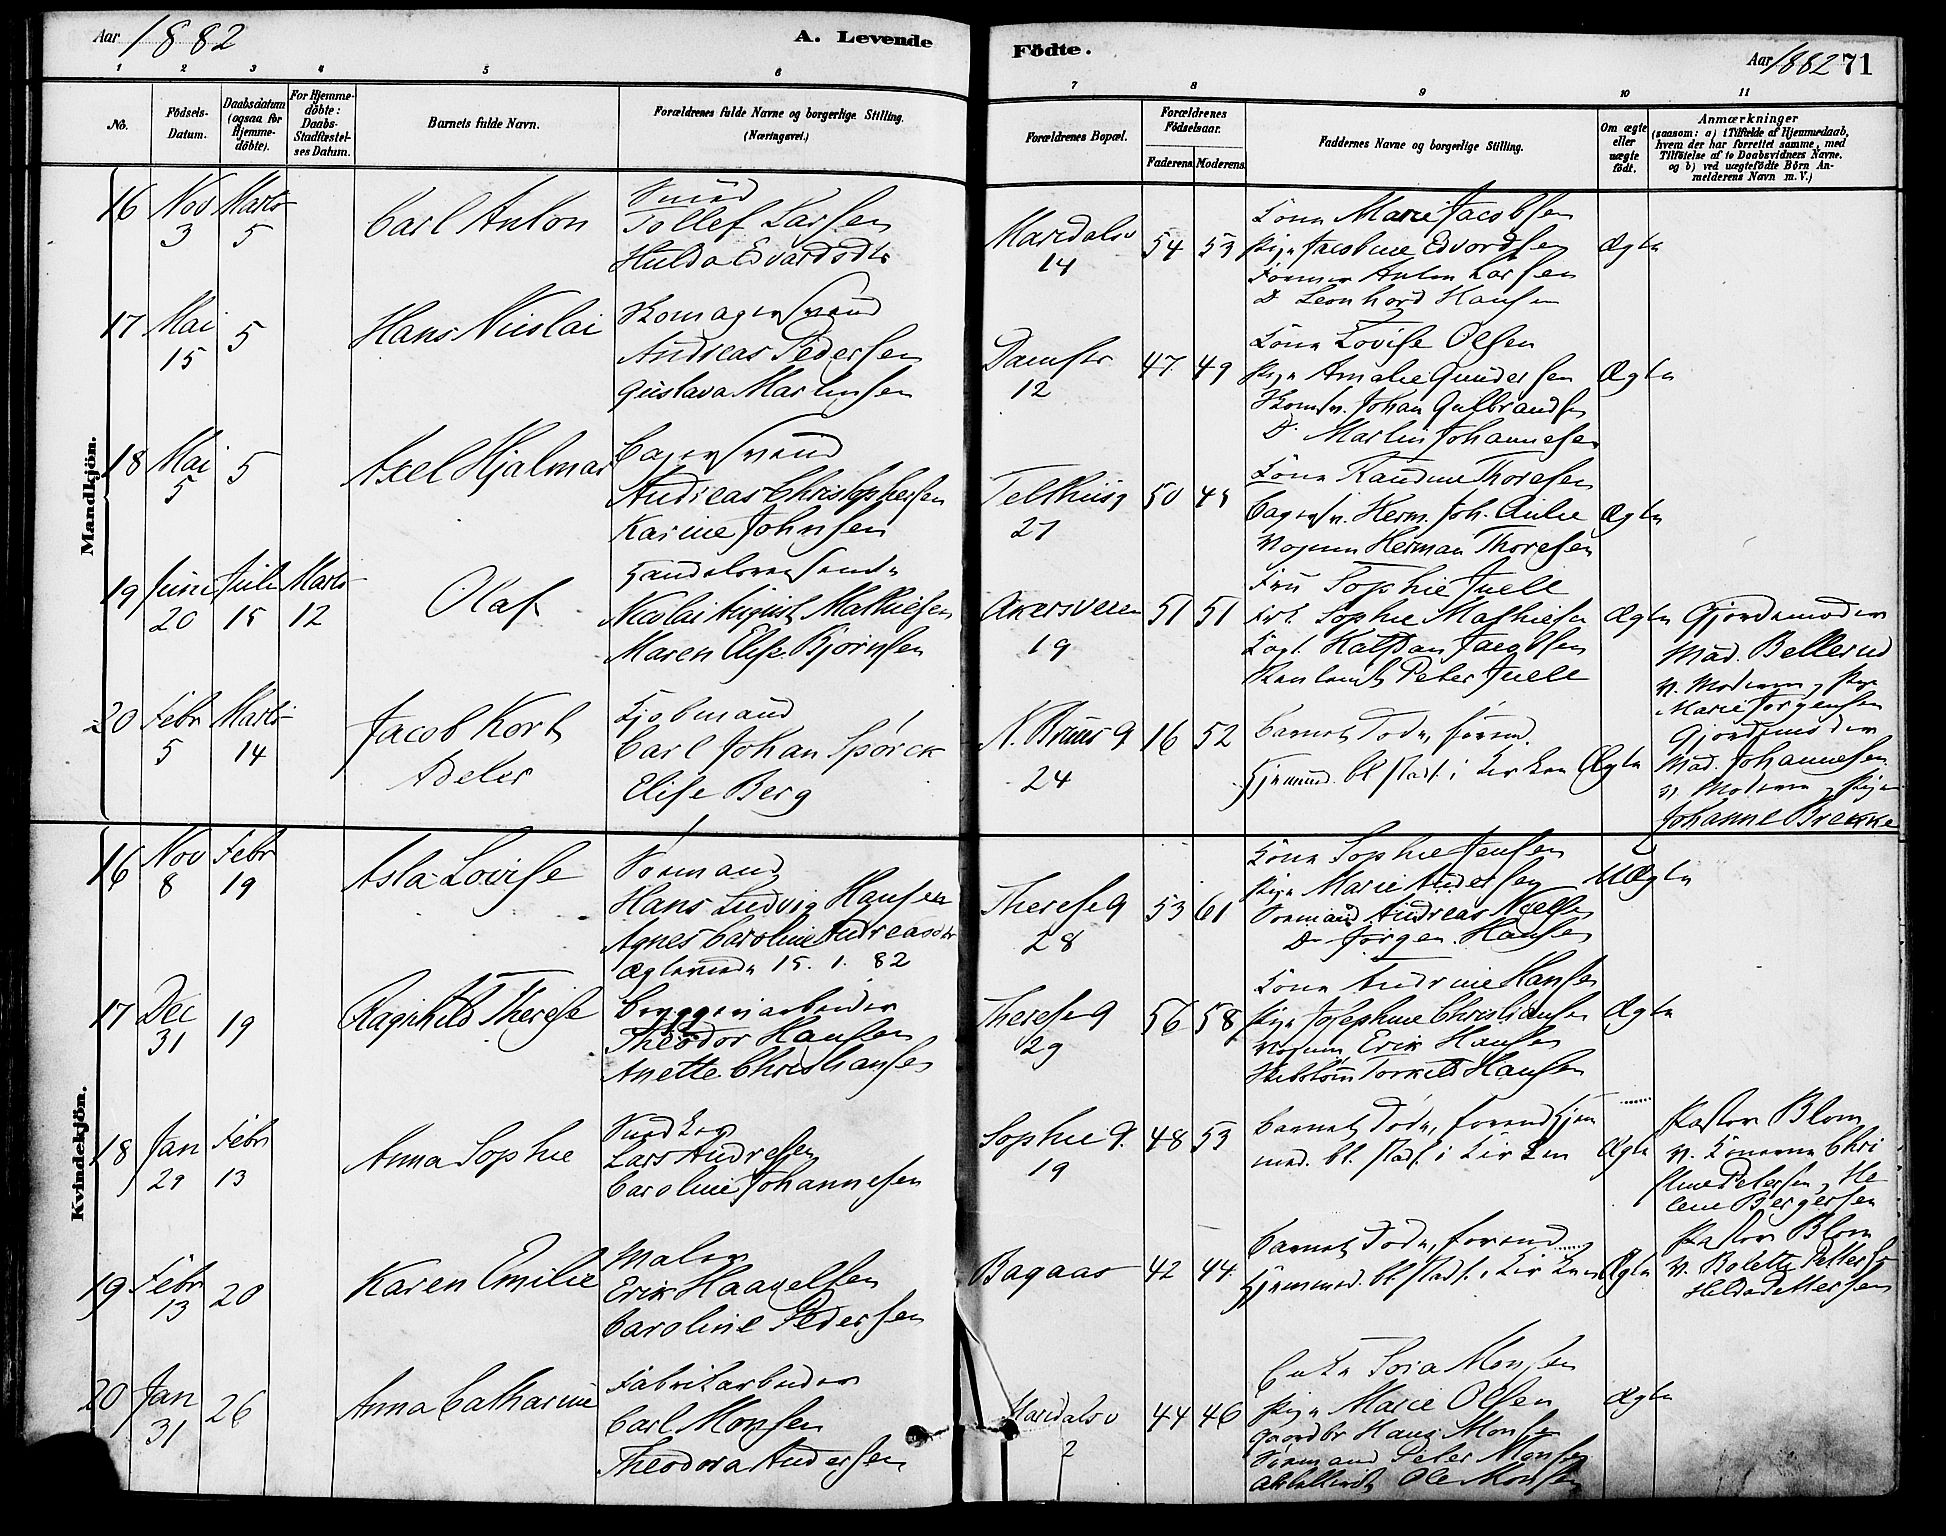 Aar 1882
A. Levende
Födte.
Aar 1882 71
1 2 3 4 5 6 7 8 9 10 11
No.
Födsels-
Datum.
Daabsdatum
(ogsaa for
Hjemme-
döbte).
For Hjemme-
döbte:
Daabs-
Stadfæstel-
ses Datum.
Barnets fulde Navn.
Forældrenes fulde Navne og borgerlige Stilling.
(Næringsvei.)
Forældrenes Bopæl.
Forældrenes
Födselsaar.
Faderens Moderens
Faddernes Navne og borgerlige Stilling.
Om ægte
eller
uægte
födt.
Anmærkninger
(saasom: a) i Tilfælde af Hjemmedaab,
hvem der har forrettet samme, med
Tilföielse af to Daabsvidners Navne.
og b) ved uægtefödte Börn An-
melderens Navn m. V.)
Mandkjön.
16 Nov 3 Marts 5
Carl Anton
Smed
Tollef Larsen
Hulda Edvardsdtr
Maridalsv
14
54 53
Kone Marie Jacobsen
Pige Jacobine Edvardsen
Former Anton Larsen
D. Leonhard Hansen
Ægte
17 Mai 15 5
Hans Nicolai
Skomagersvend
Andreas Pedersen
Gustava Martinsen
Damstr
12
47 49
Kone Lovise Olsen
Pige Amalie Gundersen
Skomsv. Johan Gulbrandsen
D. Martin Johannesen
Ægte
18 Mai 5 5
Axel Hjalmar
Bagersvend
Andreas Christophersen
Karine Johnsen
Telthusg
27
50 49
Kone Randine Thoresen
Bagersv. Herm. Joh.
Herman Thoresen
Ægte
19 Juni 20 Juli 15 Marts 12
Olaf
Handelsreisende
Nicolai August Mathiesen
Maren Elise Bjørnsen
Akersveien
19
51 51
Fru Sophie Juell
Frk. Sophie Mathiesen
Halfdan Jacobsen
Peter Juell
Ægte
Gjordemoder
Mad. Bellerud
v. Moderen og Pige
Marie Jørgensen
20 Febr 5 Marts 14
Jacob Kort
Adeler
Kjøbmand
Carl Johan Spørck
Elise Berg
N. Brunsg
24
16 52
Barnet Døde, forend
Hjemmed. bl. stadf. i Kirken
Ægte
Gjordemoder
Mad. Johannesen
v. Moderen og Pige
Johanne Brekke
Kvindekjön.
16 Nov 8 Febr 19
Asla Lovise
Formand
Hans Ludvig Hansen
Agnes Caroline Andreasdtr
Ægteviede 15. 1. 82
Thereseg
28
53 61
Kone Sophie Jensen
Pige Marie Andersen
Formand Andreas Nielsen
D. Jørgen Hansen
Uægte
17 Dec 31 19
Ragnhild Therese
Bryggeriarbeider
Theodor Hansen
Anette Christiansen
Thereseg
29
56 58
Kone Andrine Hansen
Pige Josephine Christiansen
Erik Hansen
Torkild Hansen
Ægte
18 Jan 29 Febr 13
Anna Sophie
Snedker
Lars Andresen
Caroline Johannesen
Sophieg.
19
48 53
Barnet Døde, forend Hjem
med. bl. stadf. i Kirken
Ægte
Pastor Blom
v. Konerne Chri
stine Petersen og He
lene Bergersen
19 Febr 13 20
Karen Emilie
Maler
Erik Haagelsen
Caroline Pedersen
Bagaas
42 44
Barnet Døde, forend
Hjemmed. bl. stadf. i Kirken
Ægte
Pastor Blom
v. Bolette Petters
20 Jan 31 26
Anna Catharine
Fabrikarbeider
Carl Monsen
Theodora Andersen
Maridalsv
2
44 46
Enke Monsen
Pige Marie Olsen
Gaardbr Hans Monsen
Formand Peter Monsen
Ole Monsen
Ægte